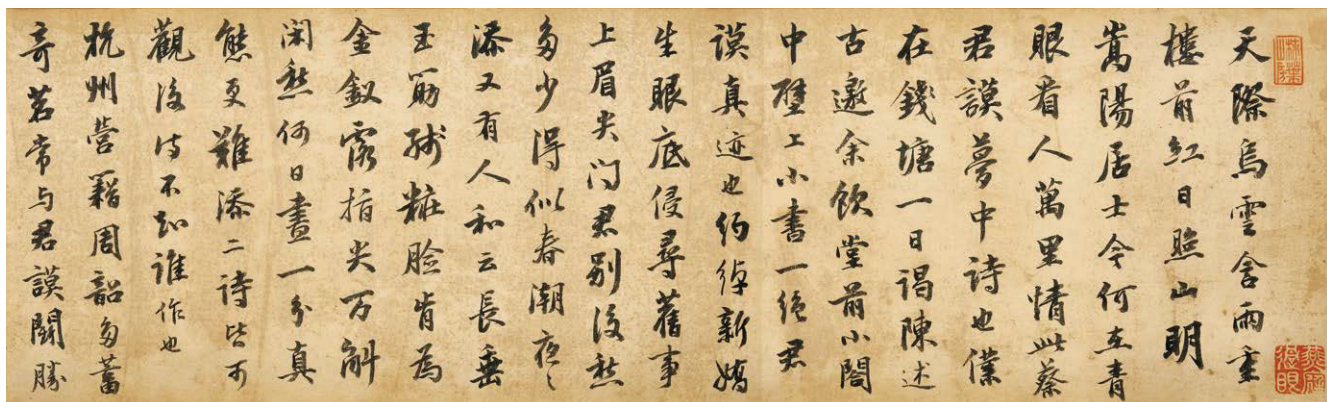 天際烏雲含雨重
樓前紅日照山明
嵩陽居士今何在青
眼看人萬里情此蔡
君謨夢中詩也僕
在錢塘一日謁陳述
古邀余飲堂前小閤
中壁上小書一絕君
謨真迹也約綽新嬌
生眼底侵尋舊事
上眉尖問君別後愁
多少得似春潮夜〻
添又有人和云長垂
玉筯殘粧臉肯為
金釵露指尖万斛
閑愁何日盡一分真
態更難添二詩皆可
觀後詩不知誰作也
杭州營籍周韶多蓄
奇茗常与君謨鬭勝